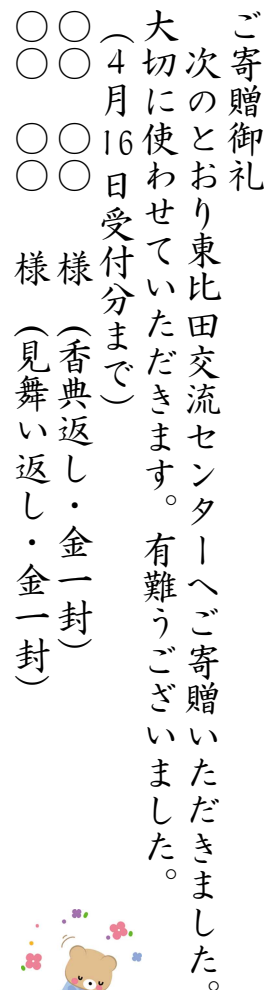 ご寄贈御礼
　次のとおり東比田交流センターへご寄贈いただきました。
大切に使わせていただきます。有難うございました。
（４月16日受付分まで）
○○　○○　様　（香典返し・金一封）
○○　○○　様　（見舞い返し・金一封）